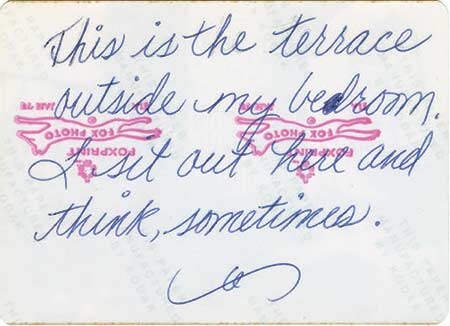 This is the terrace
outside my bedroom.
I sit out here and
think, sometimes.
FOXPRINT
FOX PHOTO
JAN 78
FOXPRINT
FOX PHOTO